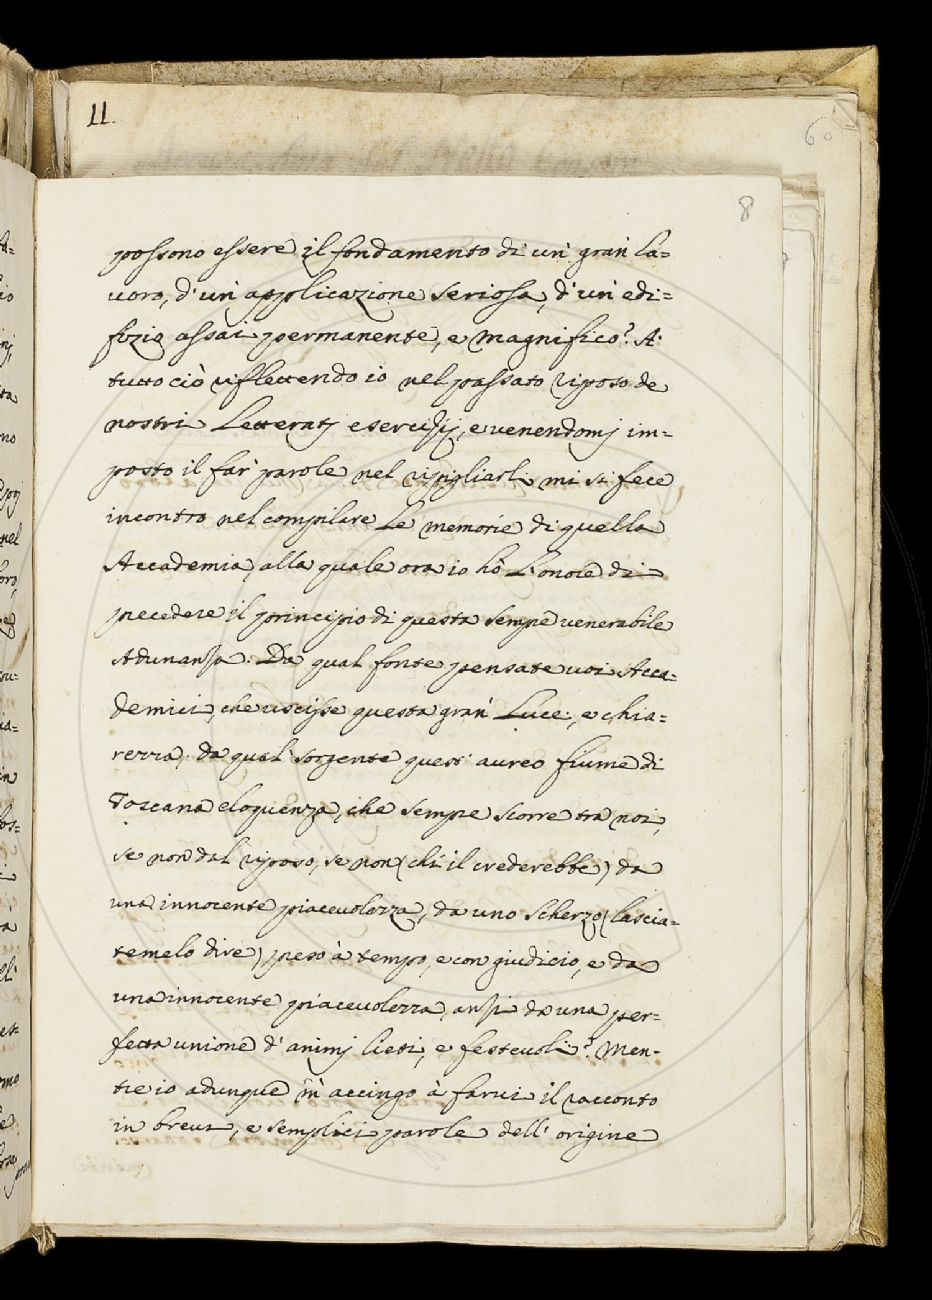 11.
60
8
possono essere il fondamento di un' gran' la=
uoro, d'un' applicazione seriosa, d'un' edi=
fizio assai permanente, e magnifico? A'
tutto ciò riflettendo io nel passato riposo de
nostri Letteratj esercizij, e venendomj im=
posto il far' parole nel ripigliarli mi si fece
incontro nel compilare Le memorie di quella
Accademia, alla quale ora io hò L'onore di
precedere il principio di questa sempre venerabile
Adunanza. Da qual fonte pensate uoi Acca=
demici, che uscisse questa gran' Luce, e chia=
rezza, da qual' sorgente quest' aureo fiume di
Toscana eloquenza, che sempre scorre tra noi,
se non dal riposo, se non (chi il crederebbe) da
una innocente piaceuolezza, da uno scherzo (lascia=
temelo dire) preso à tempo, e con giudicio, e da
una innocente piaceuolezza, anzi da una per=
fetta unione d'animj lieti, e festeuoli? Men=
tre io adunque m'accingo à farui il racconto
in breui, e semplici parole dell' origine